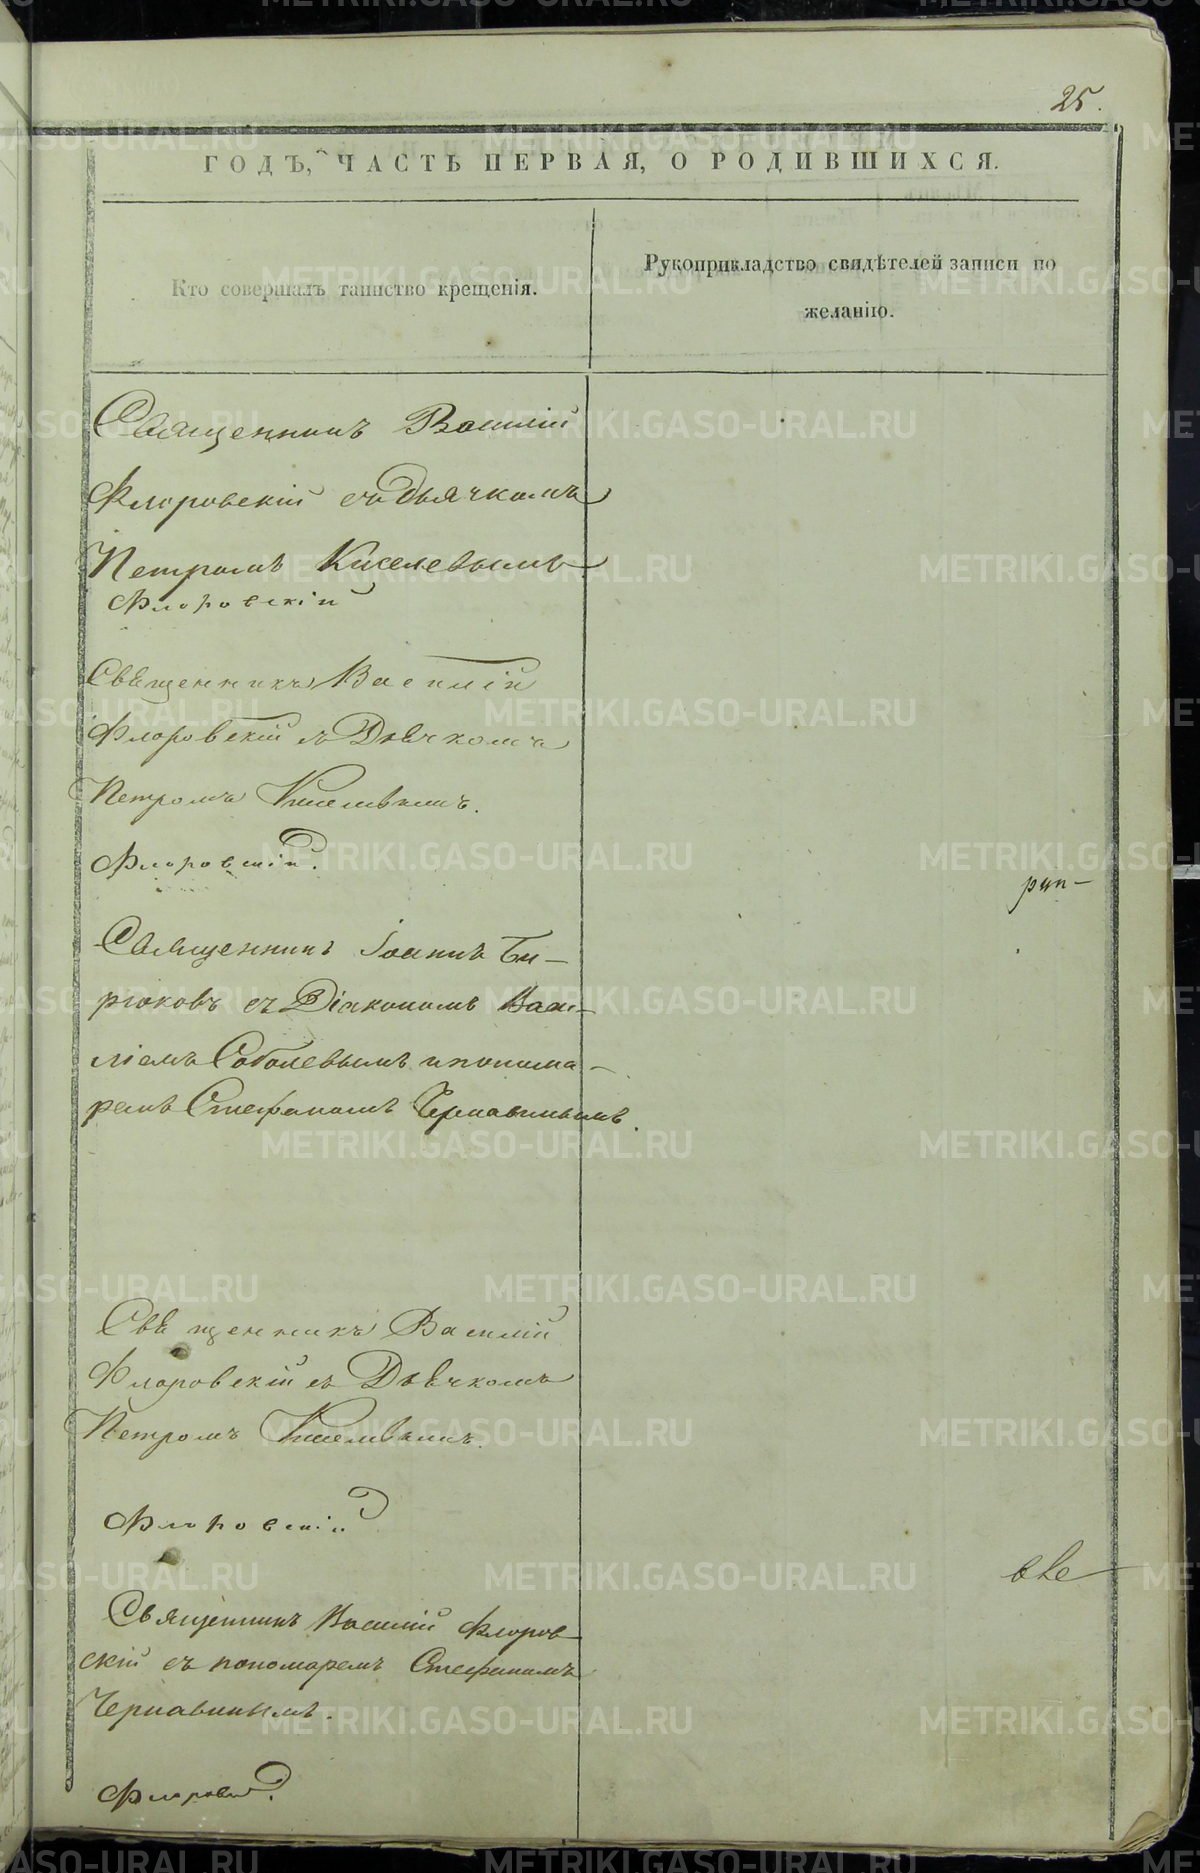 25.
ГОДЪ, ЧАСТЬ ПЕРВАЯ, О РОДИВШИХСЯ.
Кто совершалъ таинство крещенія.
Рукоприкладство свидѣтелей записи по
желанію.
Священникъ Василій
Флоровскій съ дьячкомъ
Петромъ Киселевымъ
Флоровскій
Свѣщенникъ Василій
Флоровскій съ Дьячкомъ
Петромъ Киселевымъ.
Флоровскій.
Священникъ Іоаннъ Би-
рюковъ съ Діакономъ Васи-
ліемъ Соболевымъ и понома-
ремъ Стефаномъ Чернавинымъ.
Свѣщенникъ Василій
Флоровскій съ Дьячкомъ
Петромъ Киселевымъ.
Флоровскій
Священникъ Василій Флоров-
скій съ пономаремъ Стефаномъ
Чернавинымъ.
Флоровскій.
METRIKI.GASO-URAL.RU